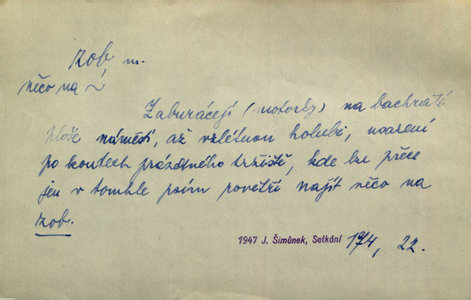 zob m.
něco na ~
Zaburácejí (motorky) na bachraté
ploše náměstí, až vzlétnou holubi, usazení
po koutech prázdného tržiště, kde lze přece
jen v tomhle psím povětří najít něco na
zob.
1947 J. Šimůnek, Setkání 174, 22.